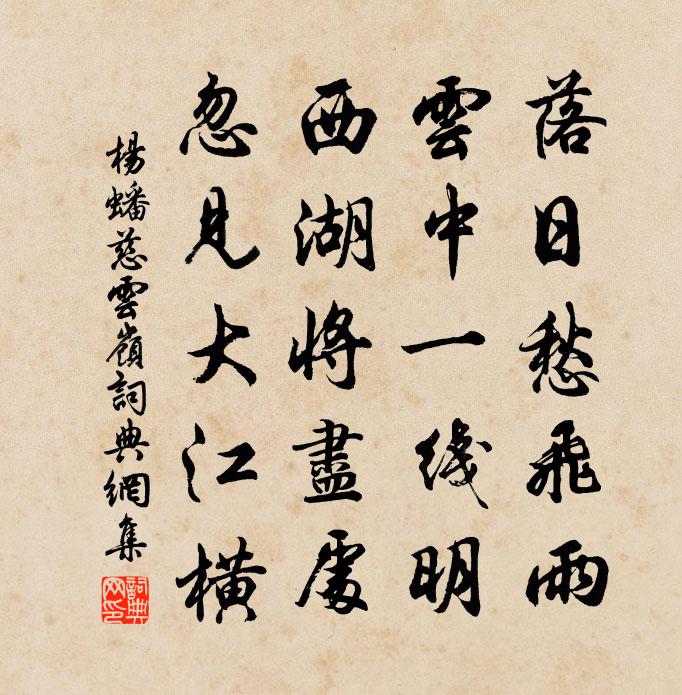 落日愁飛雨
雲中一线明
西湖將盡處
忽見大江橫
楊蟠慈雲嶺詞典網集
詞典網印